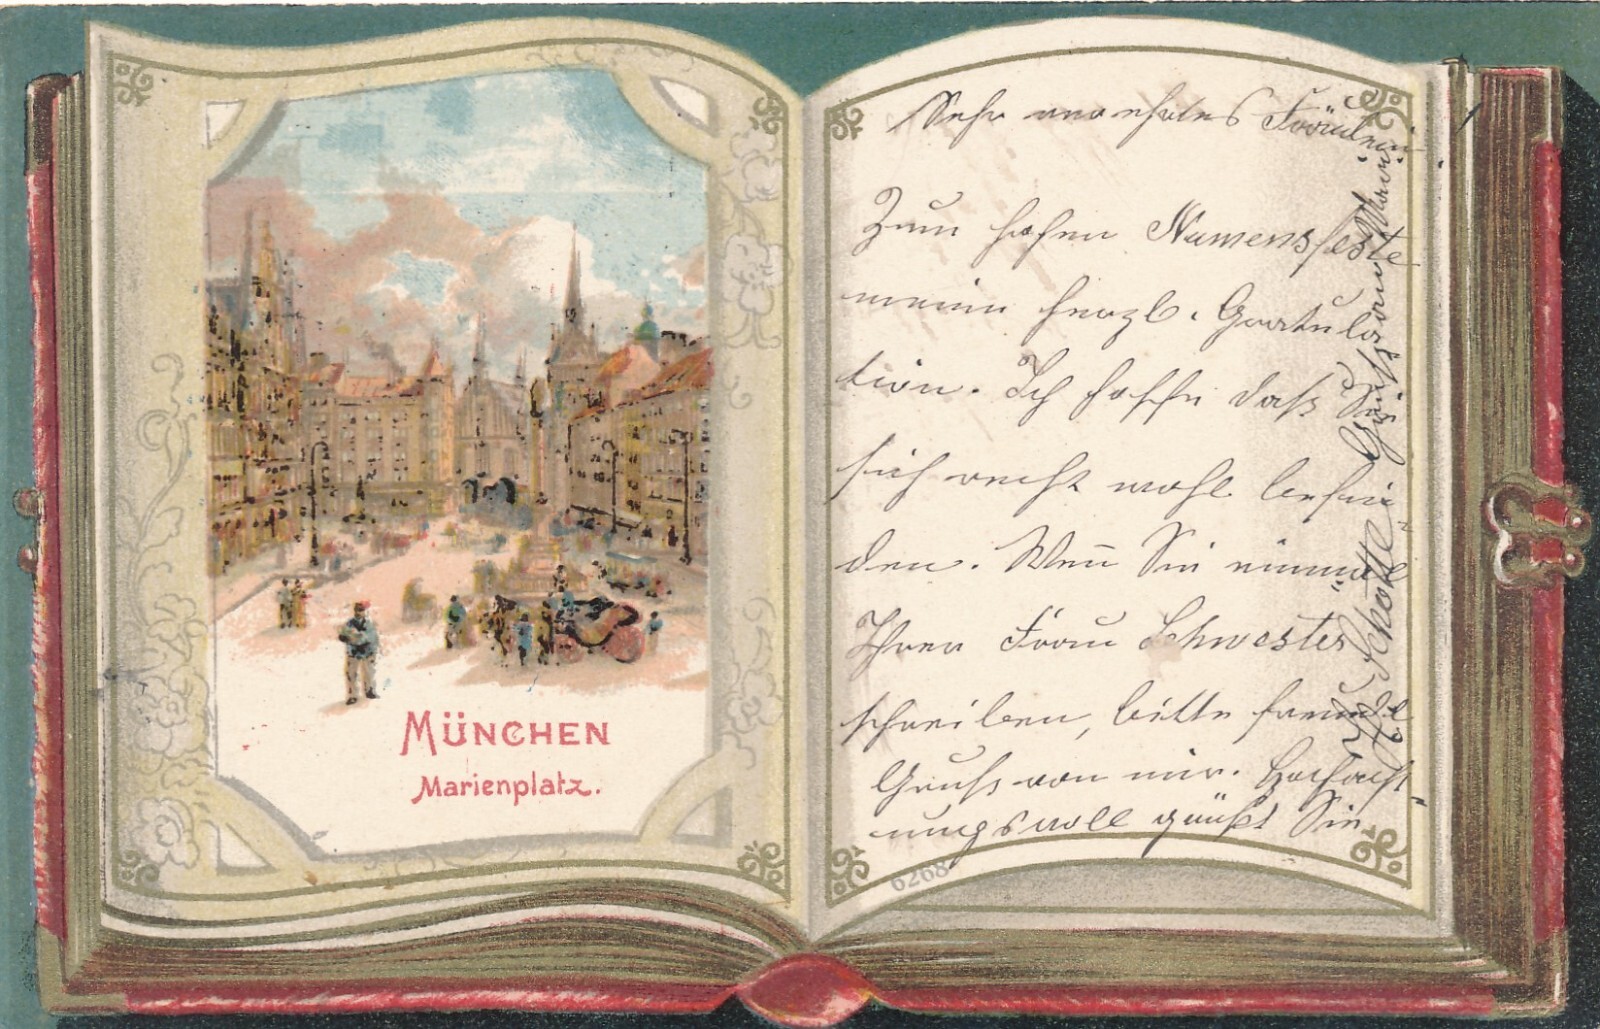 MÜNCHEN
Marienplatz.
Sehr verehrtes Fräulein
Zum hohen Namensfeste
meine herzl. Gratula
tion. Ich hoffe daß Sie
sich recht wohl befin
den. Wen̄ Sie einmal
Ihrer Frau Schwester
schreiben, bitte freundl
Gruß von mir. Hochacht
ungsvoll grüßt Sie
Schotte
6268